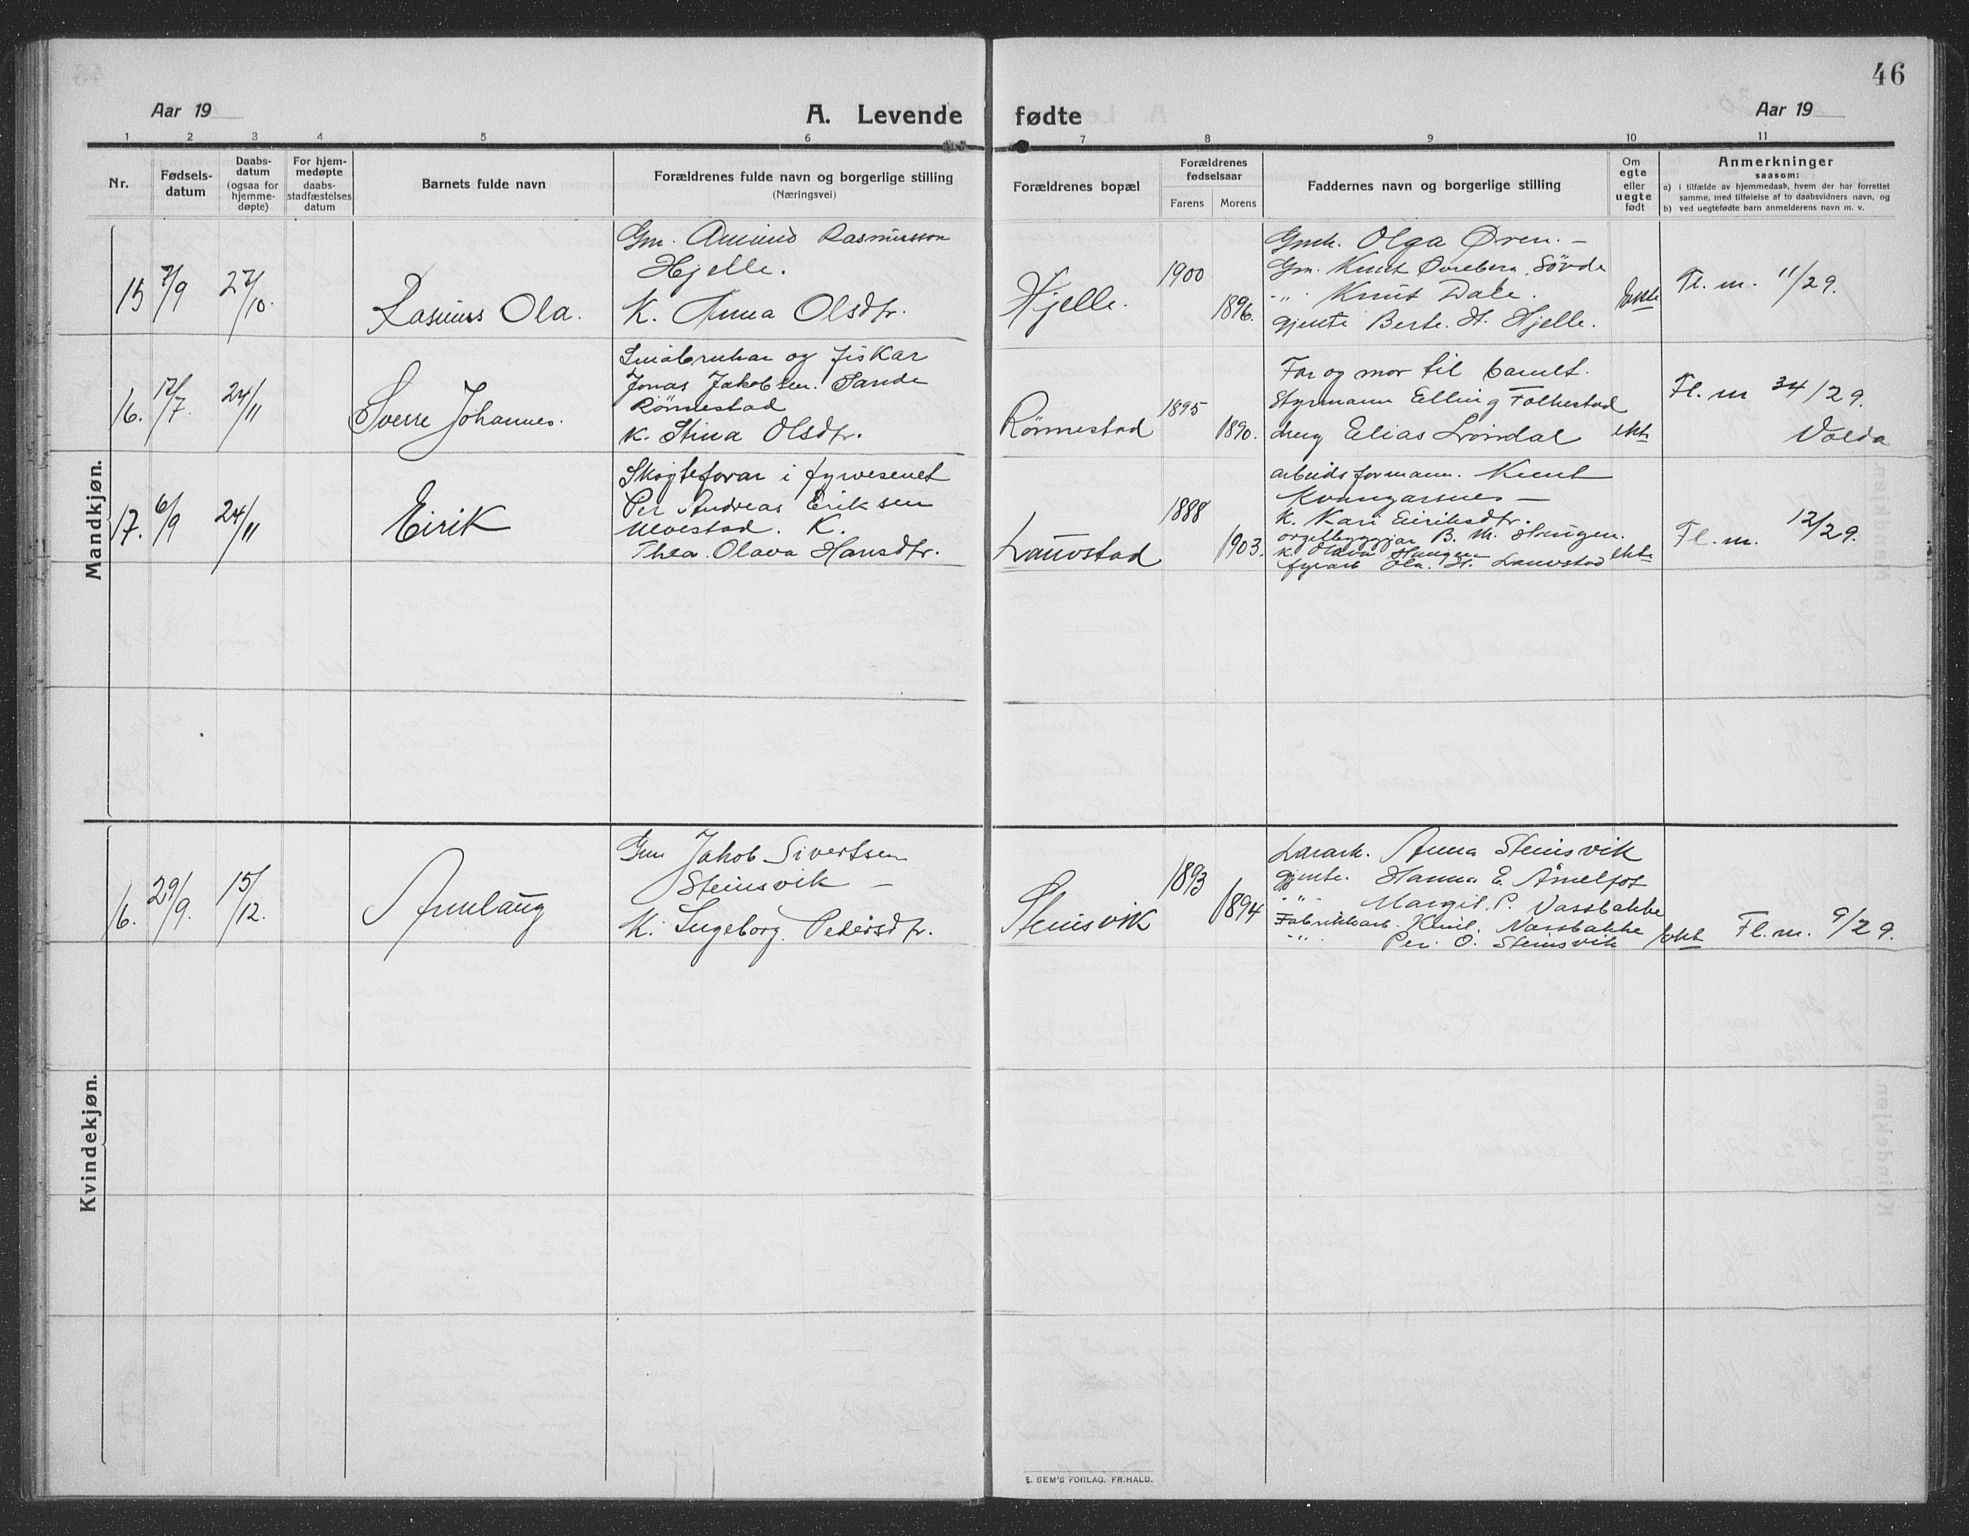 46
Aar 19
A. Levende fødte
Aar 19
1 2 3 4 5 6 7 8 9 10 11
Nr.
Fødsels-
datum
Daabs-
datum
(ogsaa for
hjemme-
døpte)
For hjem-
medøpte
daabs-
stadfæstelses
datum
Barnets fulde navn
Forældrenes fulde navn og borgerlige stilling
(Næringsvei)
Forældrenes bopæl
Forældrenes
fødselsaar
Farens Morens
Faddernes navn og borgerlige stilling
Om
egte
eller
uegte
født
Anmerkninger
saasom:
a) i tilfælde av hjemmedaab, hvem der har forrettet
samme, med tilføielse af to daabsvidners navn, og
b) ved uegtefødte barn anmelderens navn m. v.
Mandkjøn.
15 7/9 27/10. Rasmus Ola.
Gm. Amund Rasmusson
Hjelle.
K. Anna Olsdtr.
Hjelle. 1900 1896.
Gmk. Olga Øren. –
Gm. Knut Øvreberg, Sövde
" Knut Dale.
gjente Berte. H. Hjelle.
Fl. m. 11/29.
16. 17/7. 24/11 Sverre Johannes.
Småbrukar og fiskar
Jonas Jakobsen. Sande
Rönnestad
K. Stina Olsdtr.
Rönnestad 1895 1890.
Far og mor til barnet.
Styrmann Elling Folkestad
dreng Elias Lröndal
ekte
Fl. m 34/29.
Volda
17. 6/9 24/11 Eirik
Skøyteforar i fyrvesenet
Per Andreas Eriksen
Ulvestad. K.
Thea. Olava Hansdtr.
Lauvstad 1888 1903.
arbeidsformann. Knut
Kvangarsnes –
K. Kari Eiriksdtr.
orgelbyggjar B. M. Haugen.
K. Olava Haugen
fyrarb Ola. H. Lauvstad
ekte
Fl. m. 12/29.
Kvindekjøn.
16. 29/9. 15/12. Annlaug
Gm Jakob Sivertsen
Steinsvik –
K. Ingeborg Pedersdtr.
Steinsvik 1893 1894
Lærark. Anna Steinsvik
gjente. Hanna E. Åmelfot
" Margit. P. Vassbakke
Fabrikkarb. Knut. Vassbakke
" Per. O. Steinsvik
ekte
Fl. m. 9/29.
E. SEM'S FORLAG. FR.HALD.